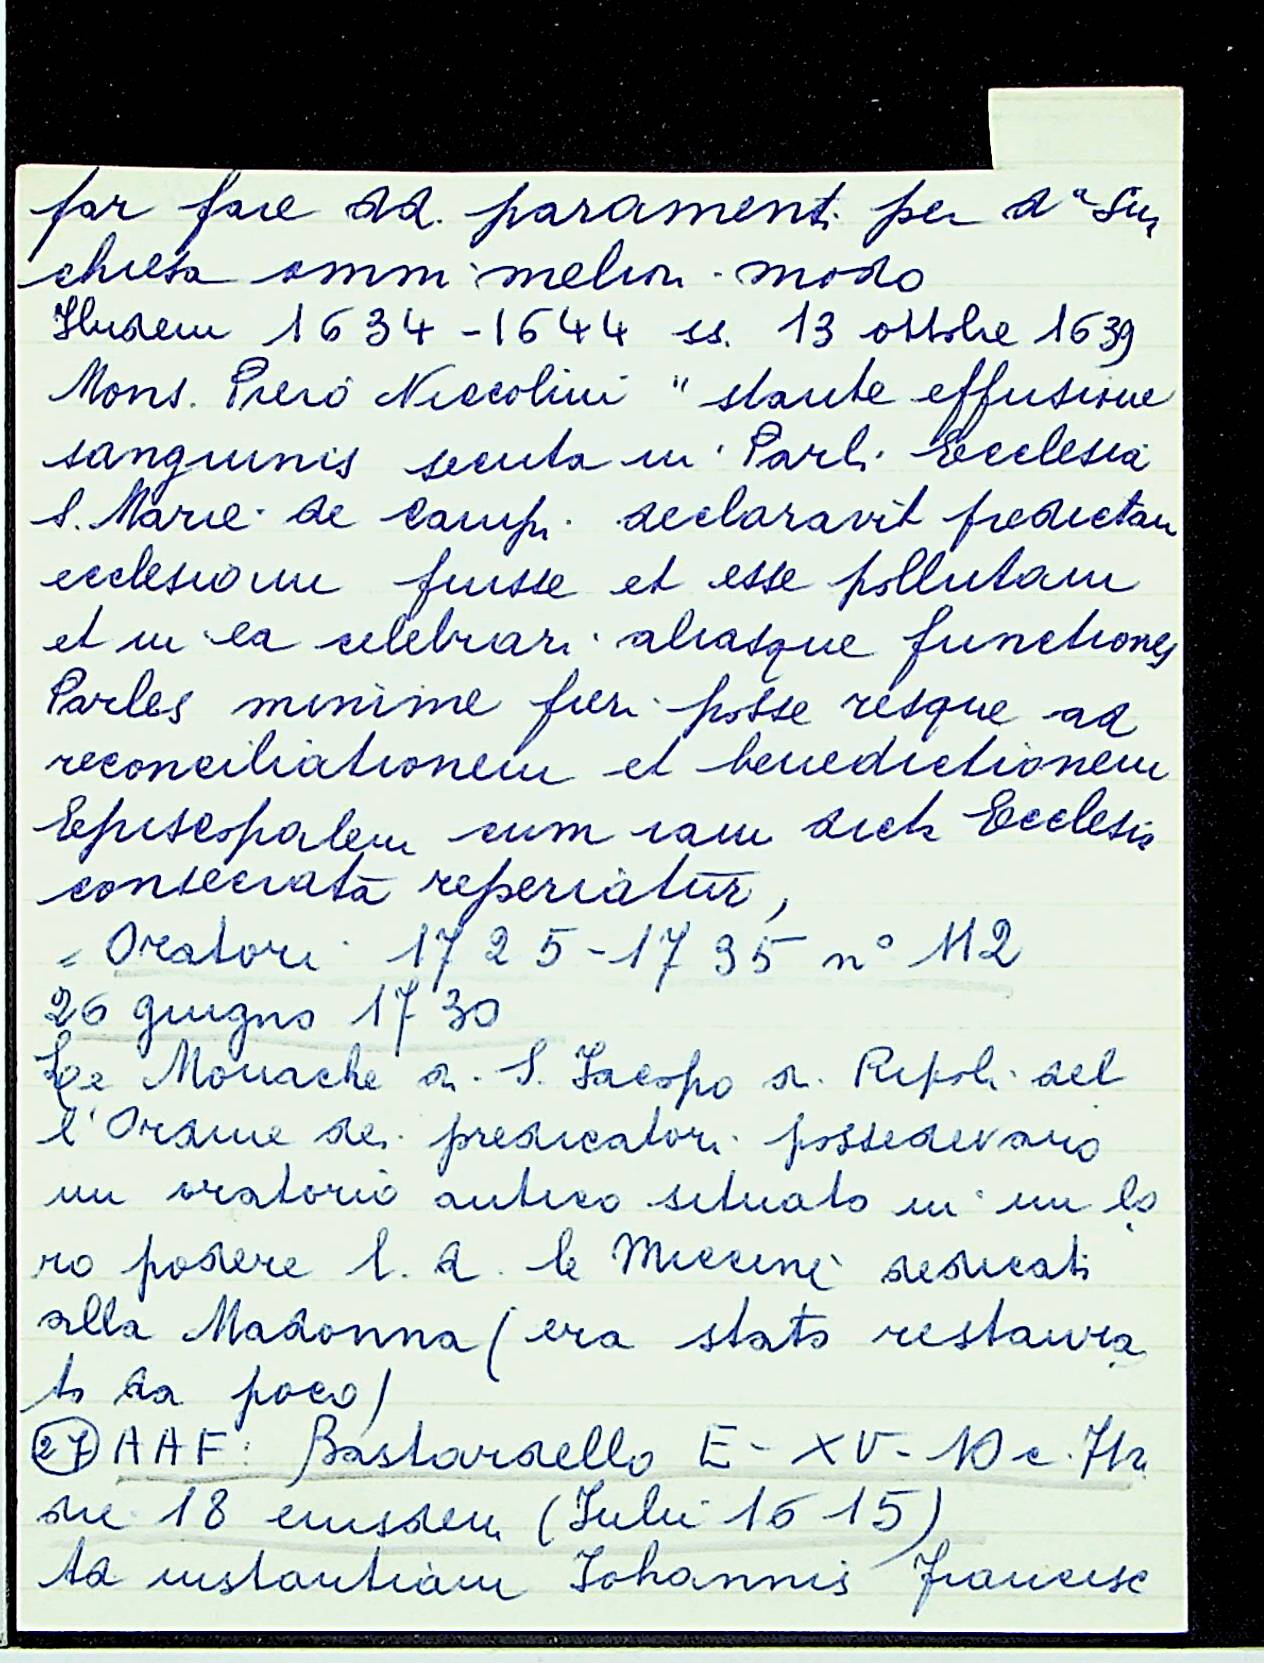 far fare dd. paramenti per da sua
chiesa omni meliori modo
Ibidem 1634-1644 ss. 13 ottobre 1639
Mons. Piero Niccolini "stante effusione
sanguinis secuta in Parli Ecclesia
S. Marie de Campi declaravit predictam
ecclesiam fuisse et esse pollutam
et in ea celebrari aliasque functiones
Parles minime fieri posse resque ad
reconciliationem et benedictionem
Episcopalem cum iam dicta Ecclesia
consecrata reperiatur,
= Oratori 1725-1735 n° 112
26 giugno 1730
Le Monache di S. Jacopo di Ripoli del
l'Ordine dei predicatori possedevano
un oratorio antico situato in un lo
ro podere l. d. le Miccine dedicati
alla Madonna (era stato restaura
to da poco)
27 AAF: Bastardello E-XV-10 c.
die 18 eiusdem (Iulii 1615)
ad instantiam Johannis Francisc